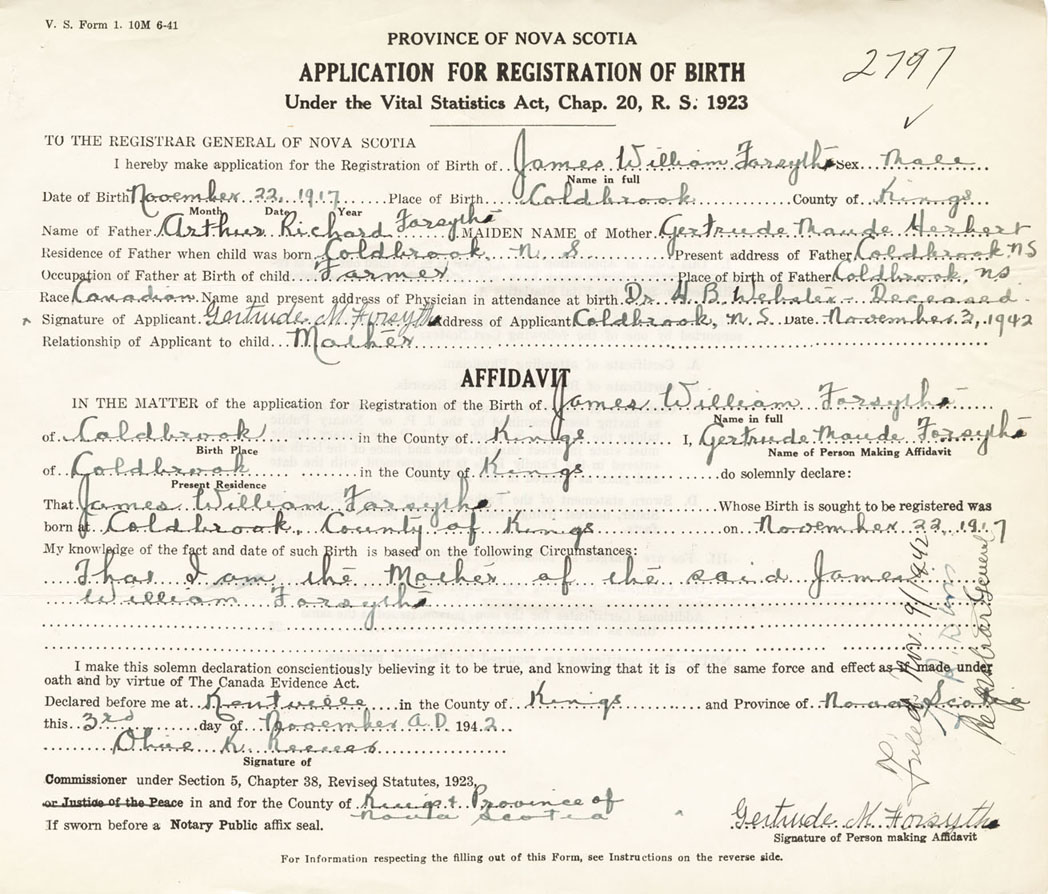 V. S. Form 1. 10M 6-41
PROVINCE OF NOVA SCOTIA
2797
APPLICATION FOR REGISTRATION OF BIRTH
Under the Vital Statistics Act, Chap. 20, R. S. 1923
TO THE REGISTRAR GENERAL OF NOVA SCOTIA
I hereby make application for the Registration of Birth of James William Forsythe Sex Male
Name in full
Date of Birth November 22, 1917 Place of Birth Coldbrook County of Kings
Month Date Year
Name of Father Arthur Richard Forsythe MAIDEN NAME of Mother Gertrude Maude Herbert
Residence of Father when child was born Coldbrook N. S. Present address of Father Coldbrook NS
Occupation of Father at Birth of child Farmer Place of birth of Father Coldbrook, NS
Race Canadian Name and present address of Physician in attendance at birth Dr. H. B. Webster - Deceased.
Signature of Applicant Gertrude M Forsythe Address of Applicant Coldbrook, N.S. Date November 3, 1942
Relationship of Applicant to child Mother
AFFIDAVIT
IN THE MATTER of the application for Registration of the Birth of James William Forsythe
Name in full
of Coldbrook in the County of Kings I, Gertrude Maude Forsythe
Birth Place Name of Person Making Affidavit
of Coldbrook in the County of Kings do solemnly declare:
Present Residence
That James William Forsythe Whose Birth is sought to be registered was
born at Coldbrook, County of Kings on November 22, 1917
My knowledge of the fact and date of such Birth is based on the following Circumstances:
That I am the Mother of the said James
William Forsythe
I make this solemn declaration conscientiously believing it to be true, and knowing that it is of the same force and effect as if made under
oath and by virtue of The Canada Evidence Act.
Declared before me at Kentville in the County of Kings and Province of Nova Scotia
this 3rd day of November A.D. 1942
Signature of
Commissioner under Section 5, Chapter 38, Revised Statutes, 1923,
or Justice of the Peace in and for the County of Kings & Province of
Nova Scotia
If sworn before a Notary Public affix seal.
Gertrude M. Forsythe
Signature of Person making Affidavit
For Information respecting the filling out of this Form, see Instructions on the reverse side.
Filed Nov. 9/1942
Registrar General